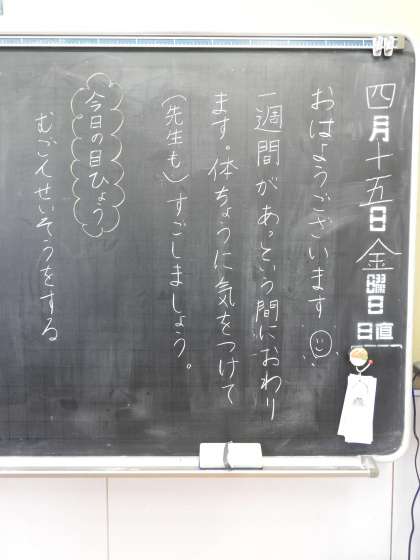 四月十五日金曜日
日直
おはようございます
一週間があっという間におわり
ます。体ちょうに気をつけて
(先生も)すごしましょう。
今日の目ひょう
むごんせいそうをする